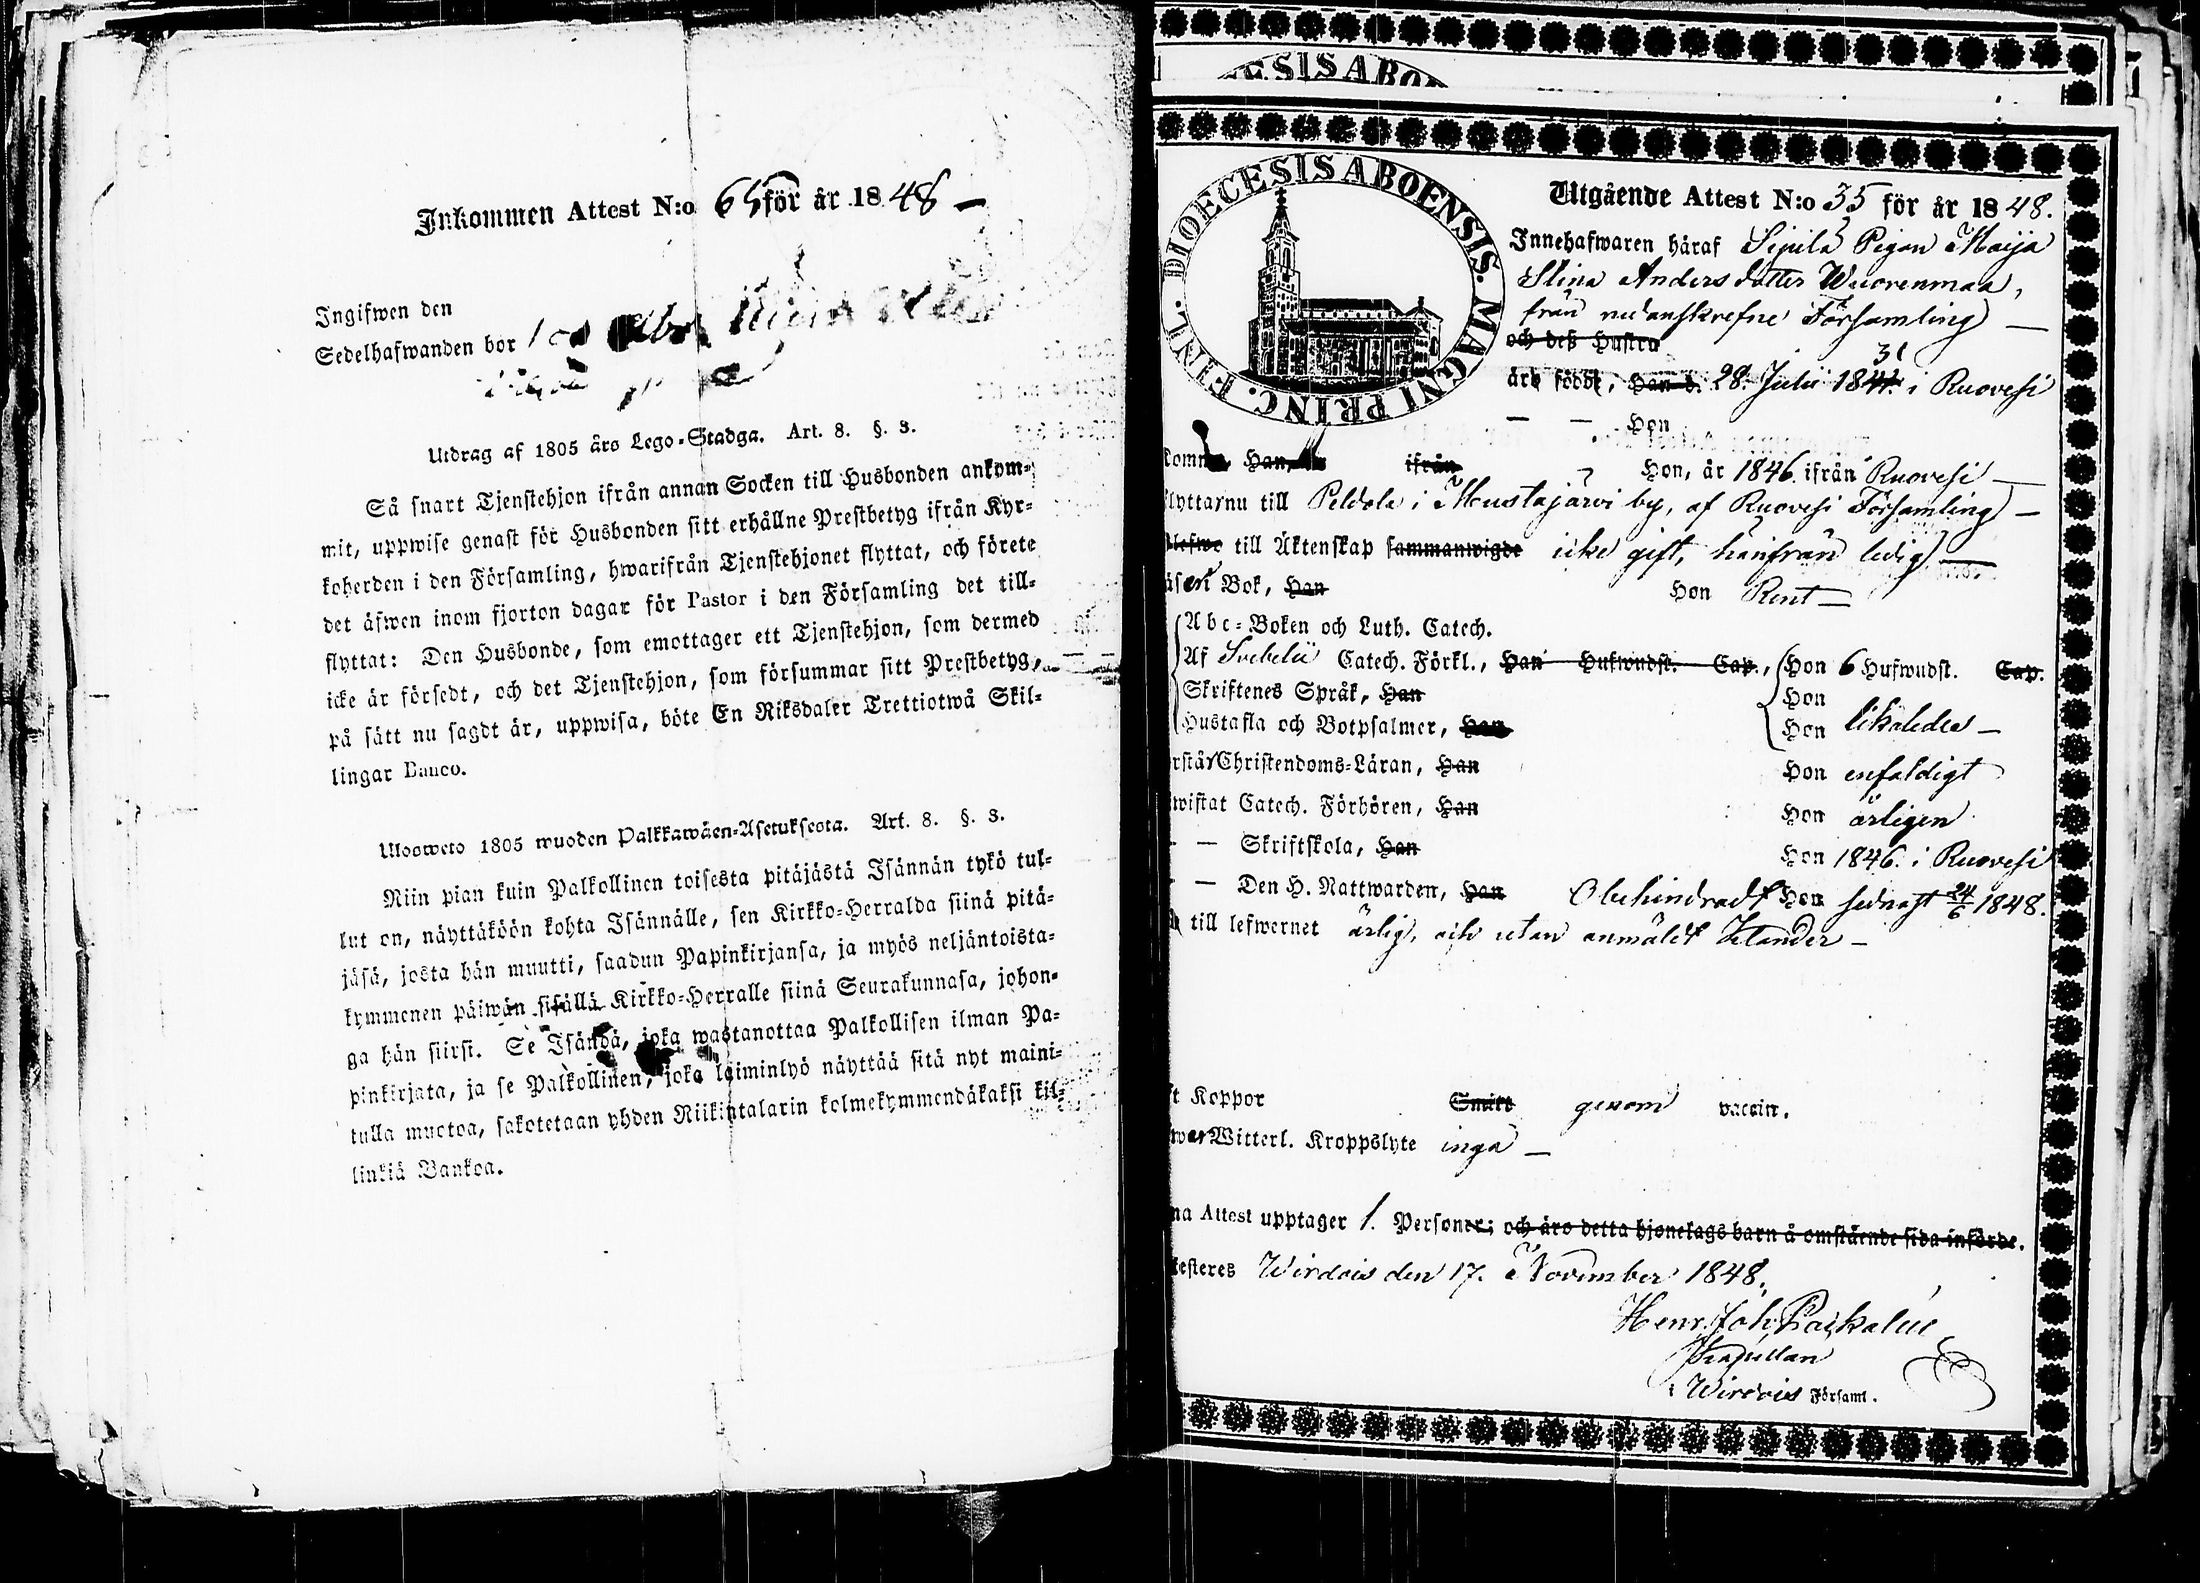 Inkommen Attest N:o 65 för år 1848 —
Ingifwen den
Sedelhafwanden bor
Utdrag af 1805 års Lego-Stadga. Art. 8. §. 3.
Så snart Tjenstehjon ifrån annan Socken till Husbonden ankom-
mit, uppwise genast för Husbonden sitt erhållne Prestbetyg ifrån Kyr-
koherden i den Församling, hwarifrån Tjenstehjonet flyttat, och förete
det äfwen inom fjorton dagar för Pastor i den Församling det till-
flyttat: Den Husbonde, som emottager ett Tjenstehjon, som dermed
icke är försedt, och det Tjenstehjon, som försummar sitt Prestbetyg,
på sätt nu sagdt är, uppwisa, böte En Riksdaler Trettiotwå Skil-
lingar Banco.
Ulosweto 1805 wuoden Palkkawäen-Asetuksesta. Art. 8. §. 3.
Niin pian kuin Palkollinen toisesta pitäjästä Isännän tykö tul-
lut on, näyttäköön kohta Isännälle, sen Kirkko-Herralda siinä pitä-
jäsä, josta hän muutti, saadun Papinkirjansa, ja myös neljäntoista-
kymmenen päiwän sisällä Kirkko-Herralle siinä Seurakunnasa, johon-
ga hän siirsi. Se Isändä, joka wastanottaa Palkollisen ilman Pa-
pinkirjata, ja se Palkollinen, joka laiminlyö näyttää sitä nyt maini-
tulla muotoa, sakotetaan yhden Riikintalarin kolmekymmendäkaksi kil-
linkiä Bankoa.
ESIS ABO
FINL. DIOECESIS ABOENSIS. MAGNI PRINC.
Utgående Attest N:o 35 för år 1848.
Innehafwaren häraf Sipilä Pigan Maija
Stina Anders dotter Wuorenmaa,
från nedanskrefne Församling —
och deß Hustru
äro födde, Han d. 28. Julii 1831 i Ruovesi
— — Hon
komne, Han, ifrån Hon, år 1846. ifrån Ruovesi —
flyttar nu till Peldola i Mustajärvi by, af Ruovesi Församling —
blefwo till Äktenskap sammanwigde icke gift, härifrån ledig —
läser i Bok, Han Hon Rent —
Abc-Boken och Luth. Catech.
Af Svebelii Catech. Förkl., Han Hufwudst. Cap., Hon 6 Hufwudst. Cap.
Skriftenes Språk, Han Hon
Hustafla och Botpsalmer, Han Hon likaledes —
rstår Christendoms-Läran, Han Hon enfaldigt
wistat Catech. Förhören, Han Hon årligen
— — Skriftskola, Han Hon 1846. i Ruovesi
— — Den H. Nattwarden, Han Obehindradt Hon sednast 24/6 1848.
till lefwernet ärlig, och utan anmäldt klander —
t Koppor Smitt genom vaccin.
wer Witterl. Kroppslyte inga —
na Attest upptager 1. Personer; och äro detta hjonelags barn å omstående sida införde.
testeres Wirdois den 17. November 1848.
Kapellan
i Wirdois Församl.